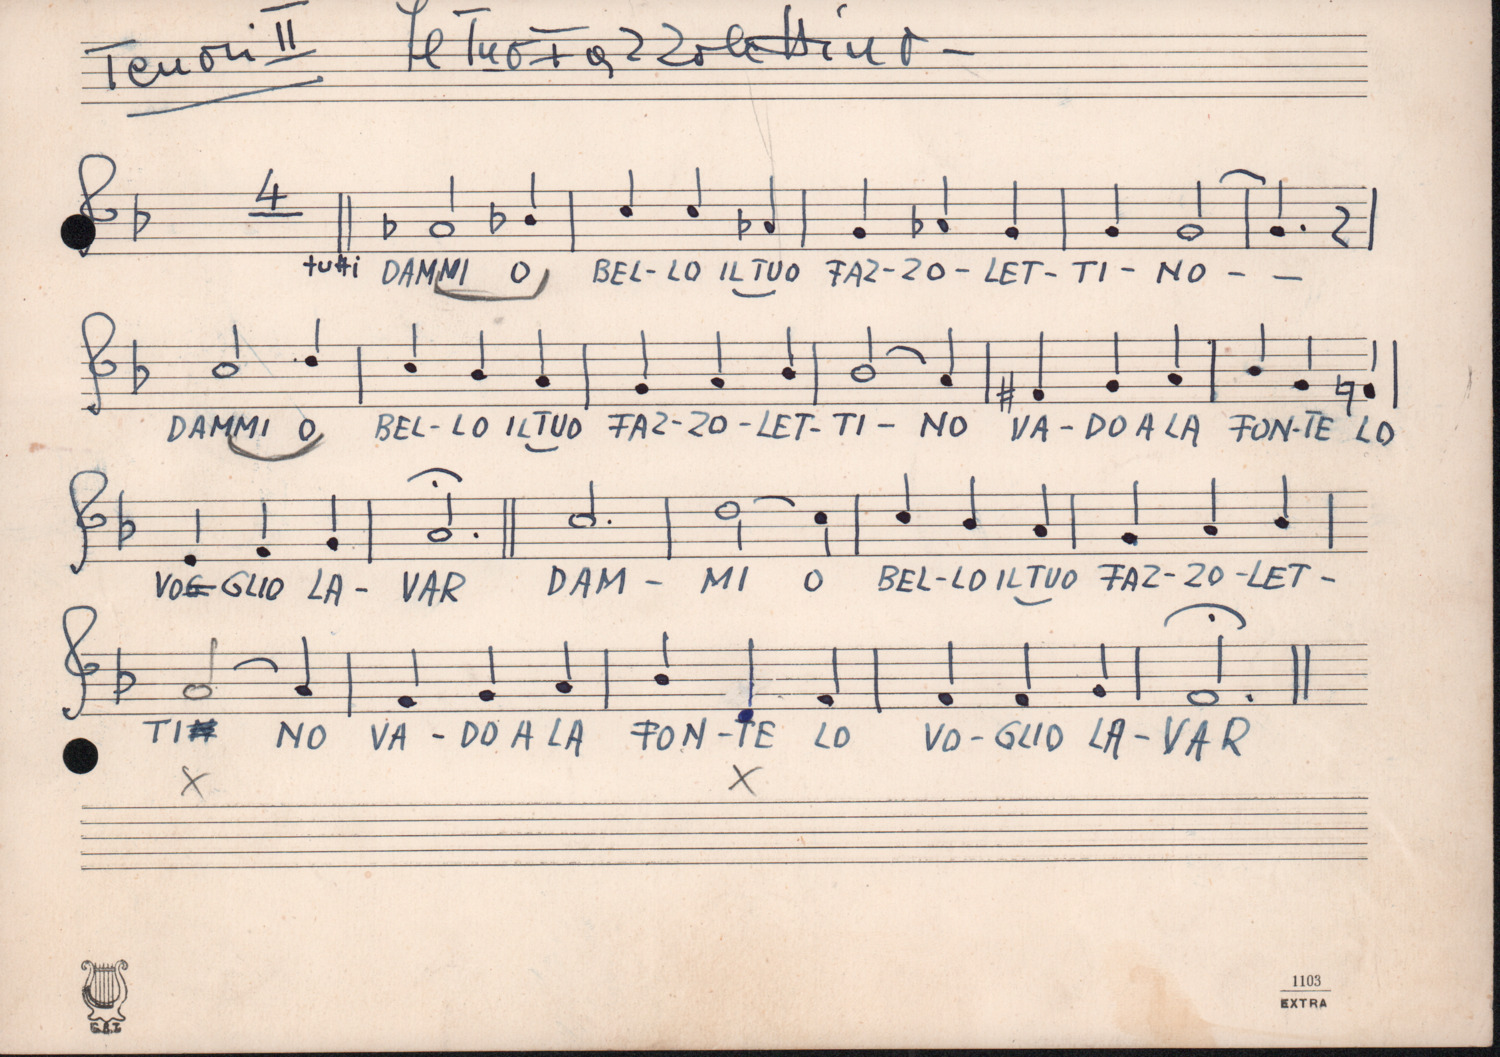 Tenori II Il Tuo Fazzolettino -
4
tutti DAMMI O BEL-LO IL TUO FAZ-ZO-LET-TI-NO - -
DAMMI O BEL-LO IL TUO FAZ-ZO-LET-TI-NO VA-DO A LA FON-TE LO
VO-GLIO LA-VAR DAM-MI O BEL-LO IL TUO FAZ-ZO-LET-
TI NO VA-DO A LA FON-TE LO VO-GLIO LA-VAR
X X
1103
EXTRA